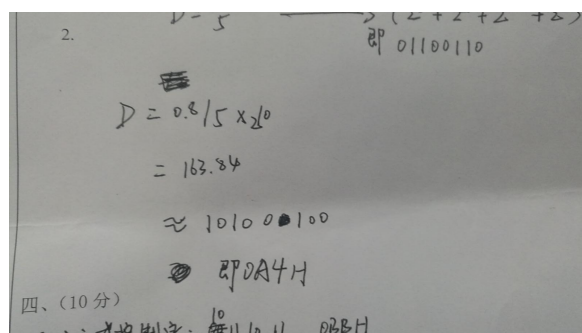 2.
即 01100110
D = 0.8/5 × 2^10
= 163.84
≈ 10100100
即0A4H
四、(10分)
10 0BBH